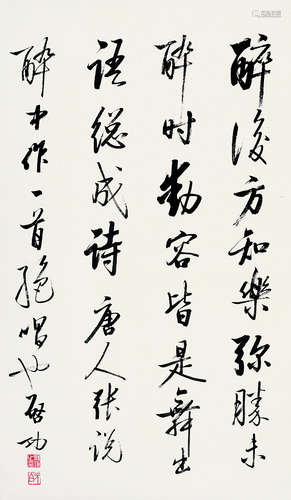 醉後方知樂弥勝未
醉时動容皆是舞出
语総成诗唐人张说
醉中作一首絶唱也啓功